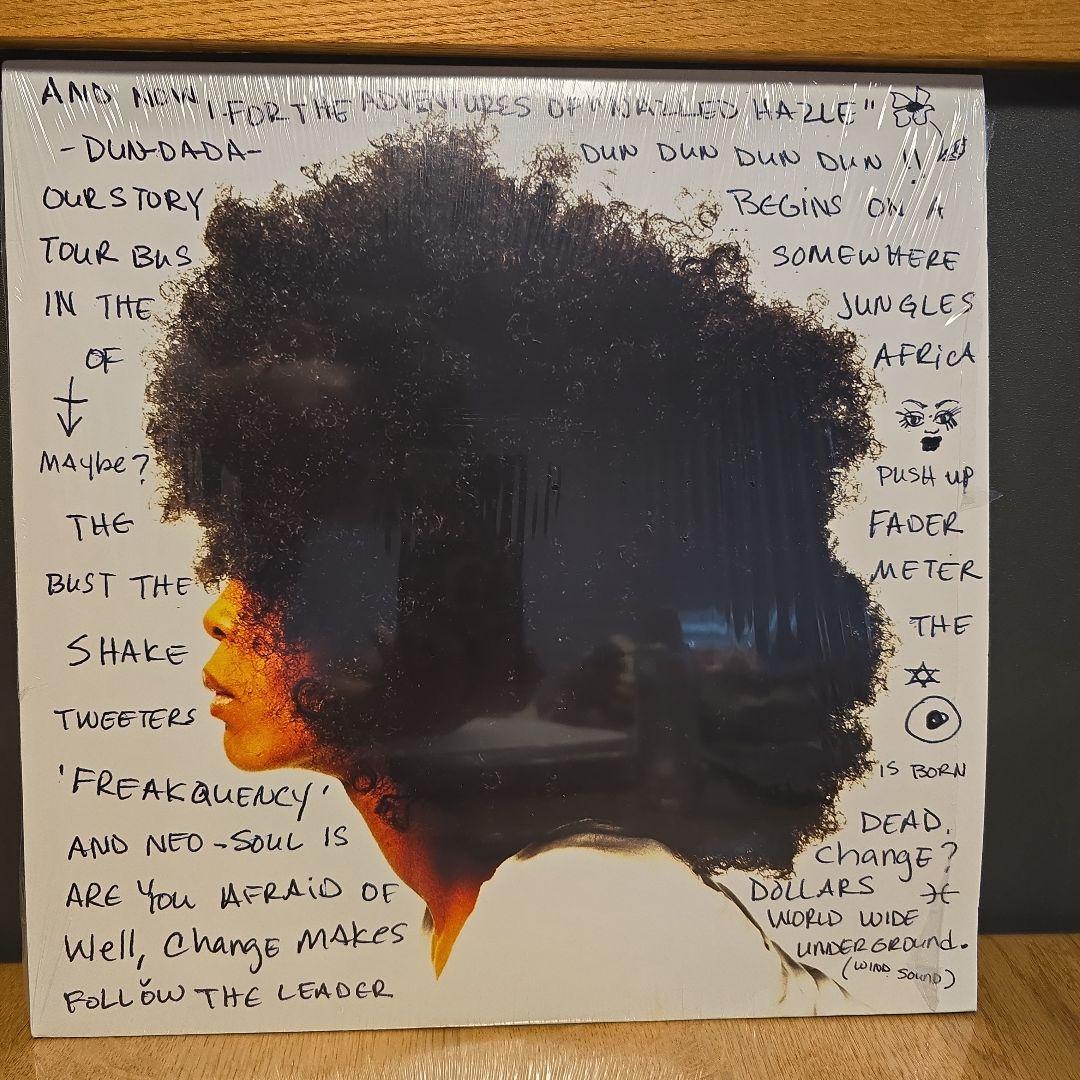 AND NOW, FOR THE ADVENTURES OF "NALLED HAZLE"
-DUN-DA-DA- DUN DUN DUN DUN !!
OUR STORY BEGINS ON A
TOUR BUS SOMEWHERE
IN THE JUNGLES
OF AFRICA
MAYbe? PUSH UP
THE FADER
BUST THE METER
SHAKE THE
TWEETERS
'FREAKQUENCY' IS BORN
AND NEO-SOUL IS DEAD.
ARE YOU AFRAID OF Change?
Well, Change MAKES DOLLARS
FOLLOW THE LEADER WORLD WIDE
UNDERGROUND.
(WIND SOUND)